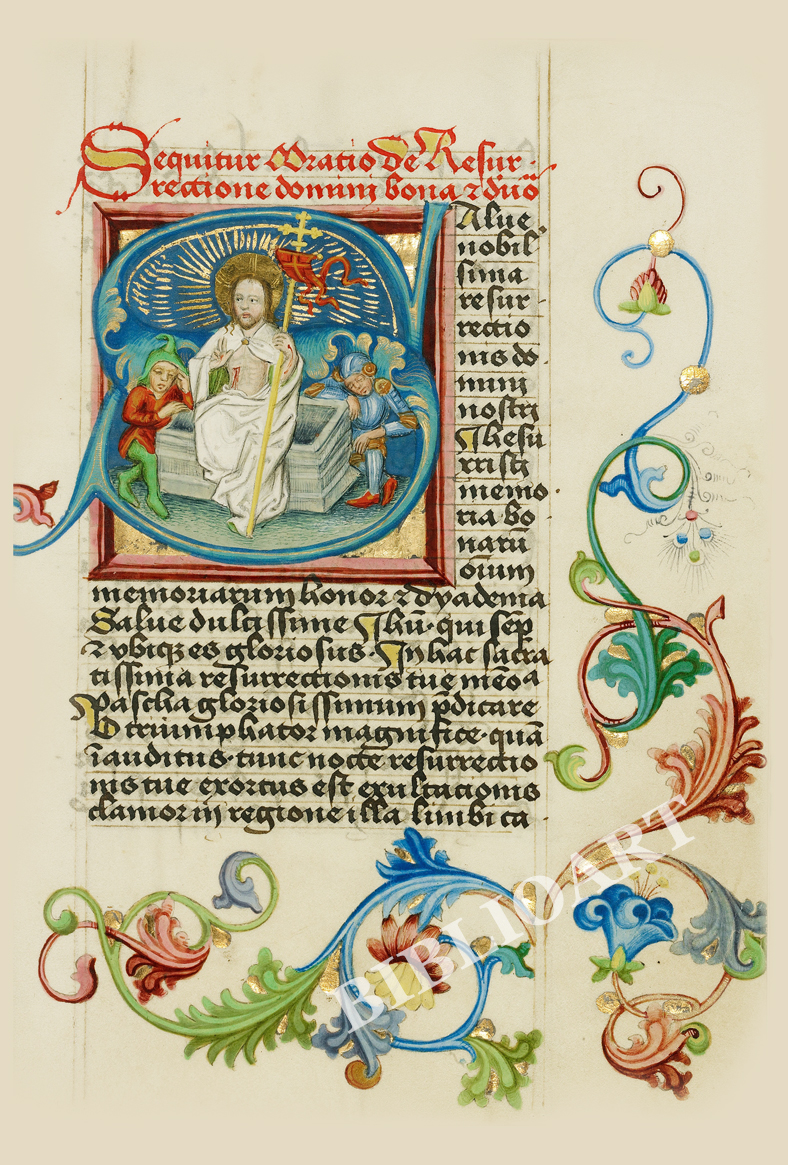 Sequitur Oratio de Resur-
rectione domini bona ⁊ duō
Salue
nobil
sima
resur
rectio
nis do
mini
nostri
Ihesu
xristi
memo
ria bo
narū
oīum
memoriarum honor ⁊ dyadema
Salue dulcissime Ihū· qui semp̄
⁊ vbiqꝫ es gloriosus· In hac sacra
tissima resurrectionis tue
Pascha gloriosissimum p̄dicare
O triumphator magnifice· quā
īauditus· tunc nocte resurrectio
nis tue exortus est exultacionis
clamor in regione illa limbi ca·
BIBLIOART